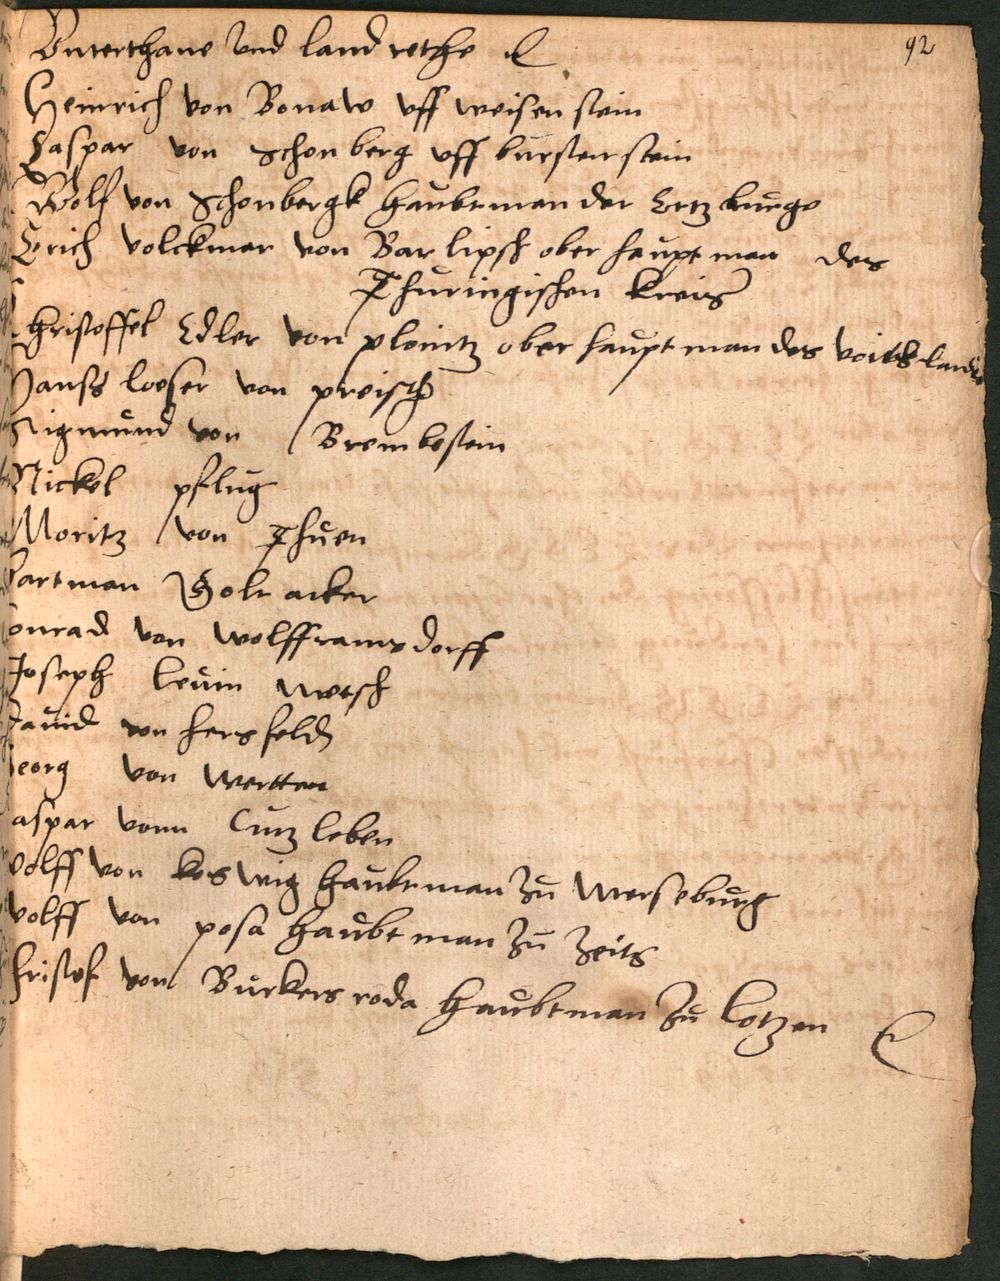 92
Unterthane und land rethe
Heinrich von Bonaw uff weisen stein
Caspar von Schonberg uff bursten stein
Wolf von Schonbergk haubtman der Ertzburge
Erich volckmar von Barlipsch ober hauptman des
Thuringischen Kreis
Christoffel Edler von plonitz ober hauptman des voitslandes
Hanss loeser von preisch
Sigmund von Brembestein
Nickel pflug
Moritz von Thuen
Hartman Golt acker
Conrad von wolfframsdorff
Joseph levin Metsch
David von hersfeldt
Georg von wertten
Caspar vonn Cutzleben
wolff von koswig haubtman zu Mersebuug
wolff von posa haubtman zu zeits
Christof von Burkersroda haubtman zu lotzen